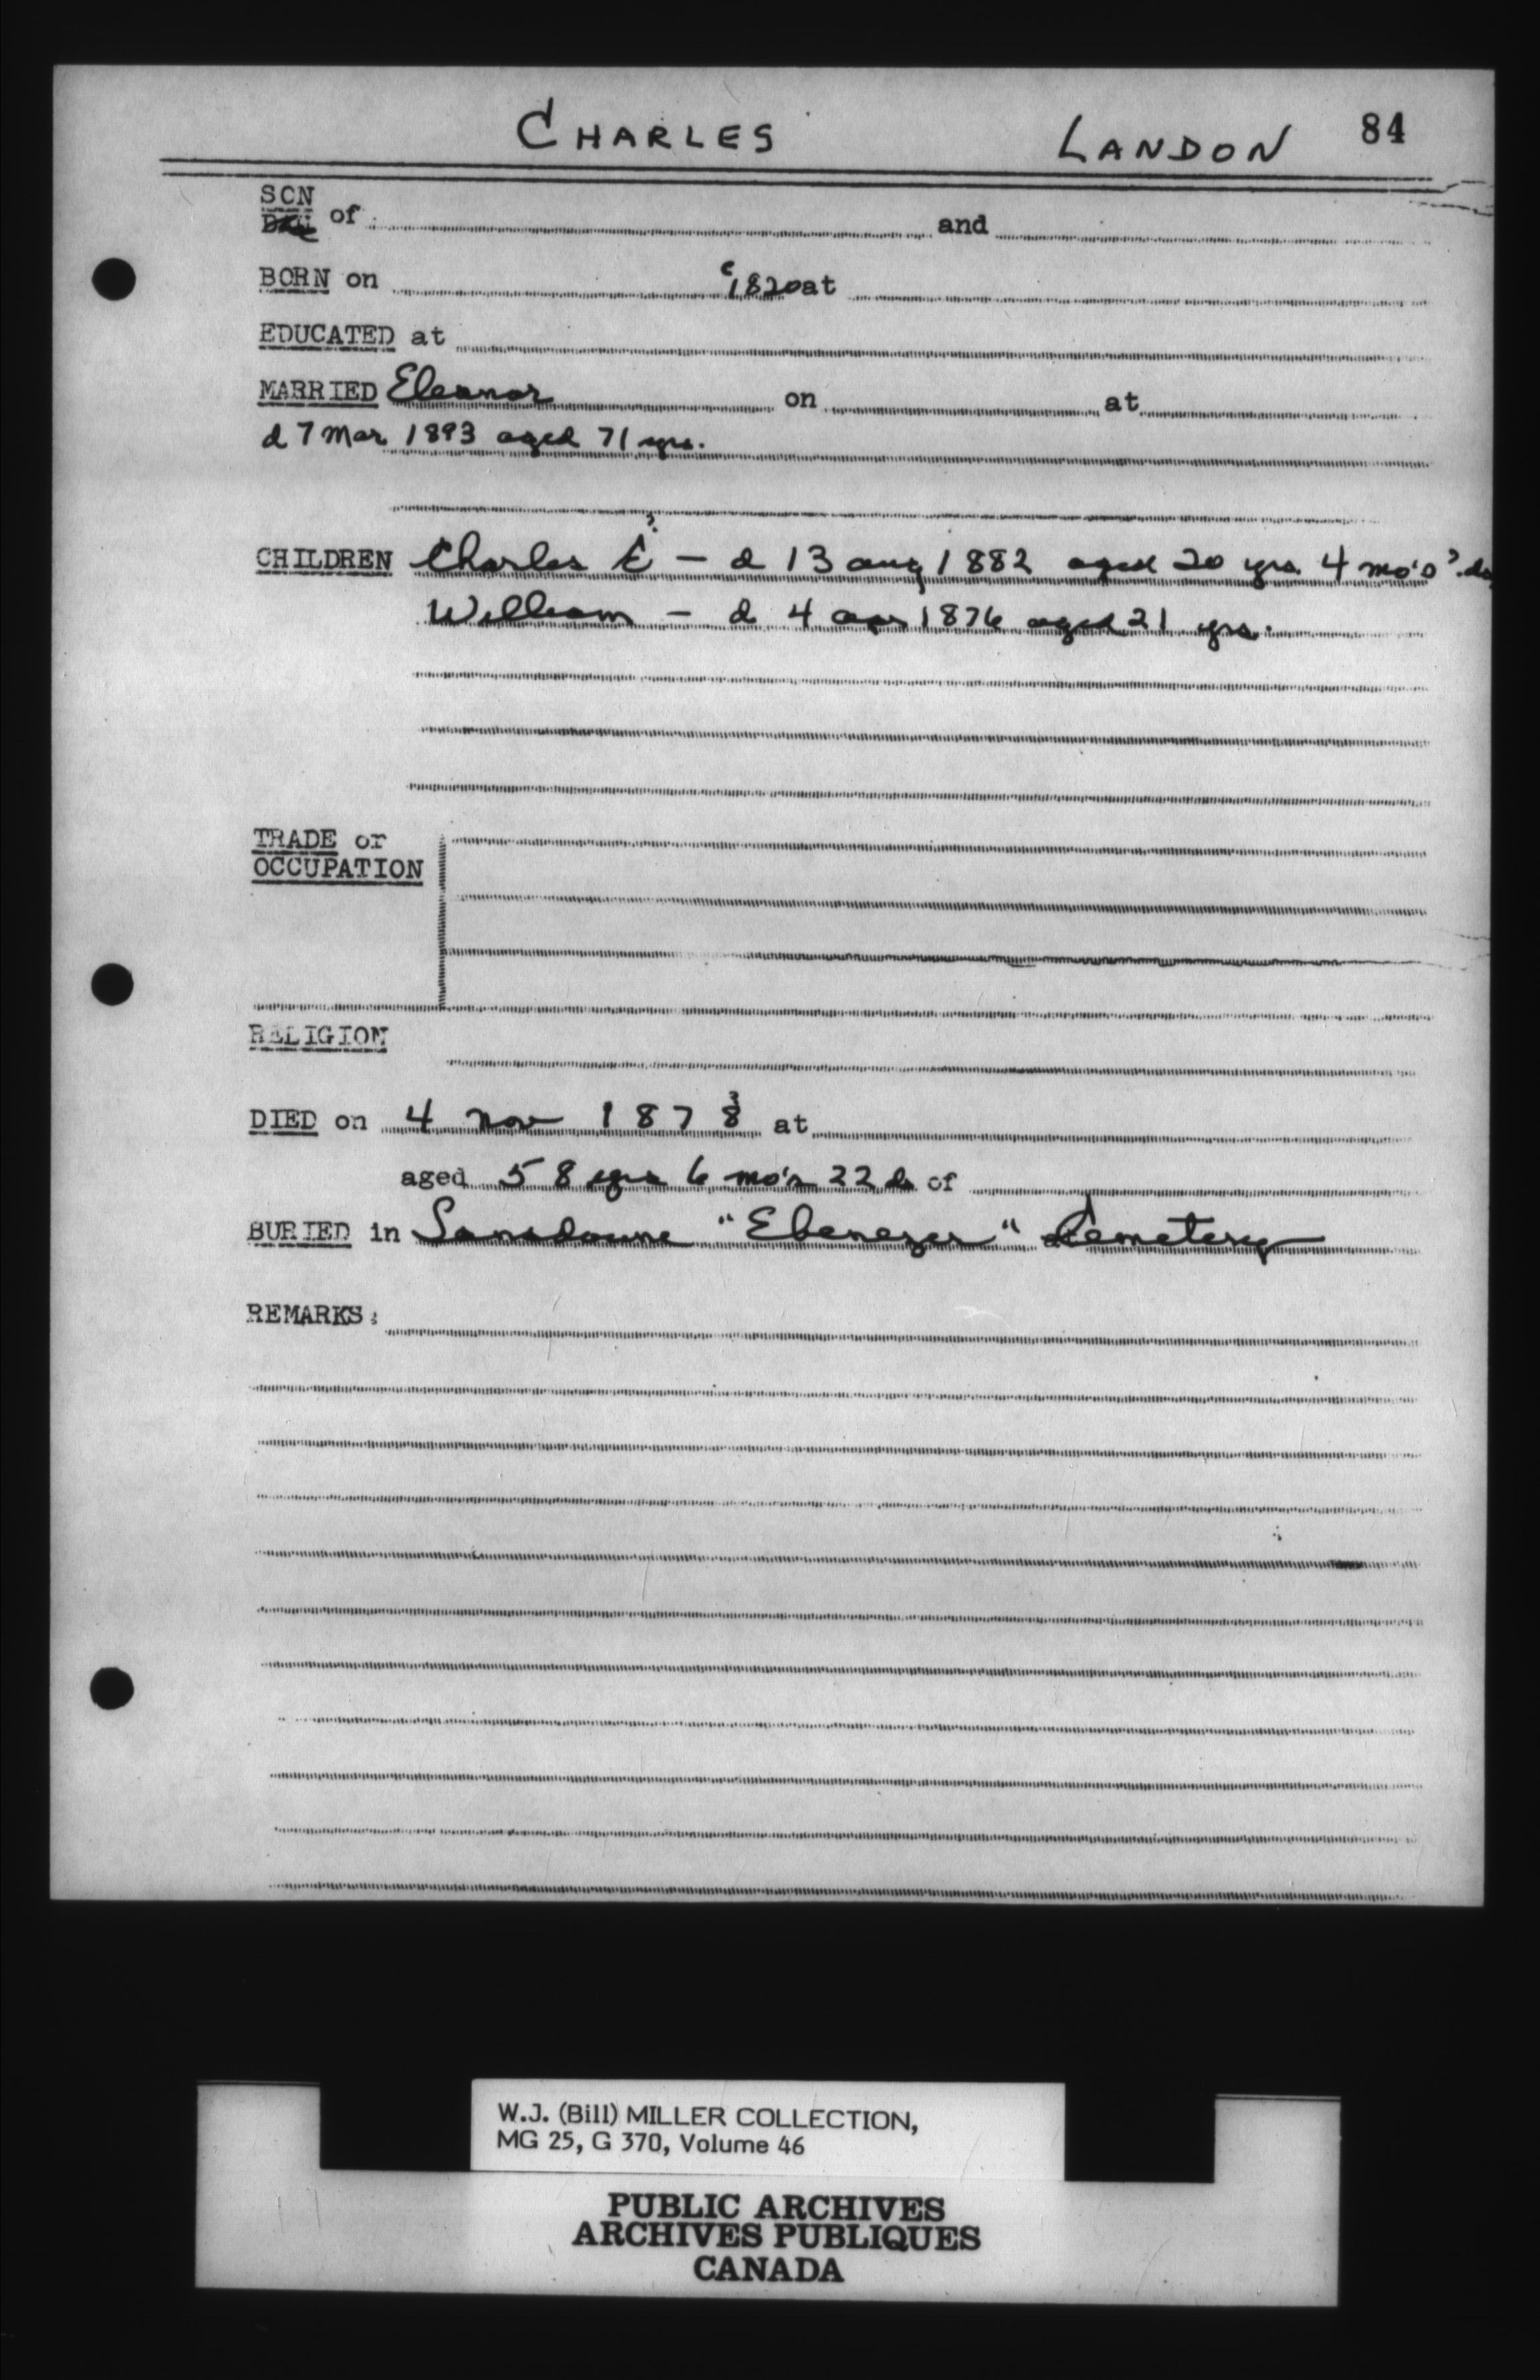 CHARLES LANDON 84
SON
DAU of and
BORN on c1820 at
EDUCATED at
MARRIED Eleanor on at
d 7 Mar 1893 aged 71 yrs.
?
CHILDREN Charles E – d 13 aug 1882 aged 20 yrs. 4 mo's ? ds
William – d 4 apr 1876 aged 21 yrs.
TRADE or
OCCUPATION
RELIGION
3
DIED on 4 Nov 1878 at
aged 58 yrs 6 mo's 22 ds of
BURIED in Lansdowne "Ebenezer" Cemetery
REMARKS:
W.J. (Bill) MILLER COLLECTION,
MG 25, G 370, Volume 46
PUBLIC ARCHIVES
ARCHIVES PUBLIQUES
CANADA